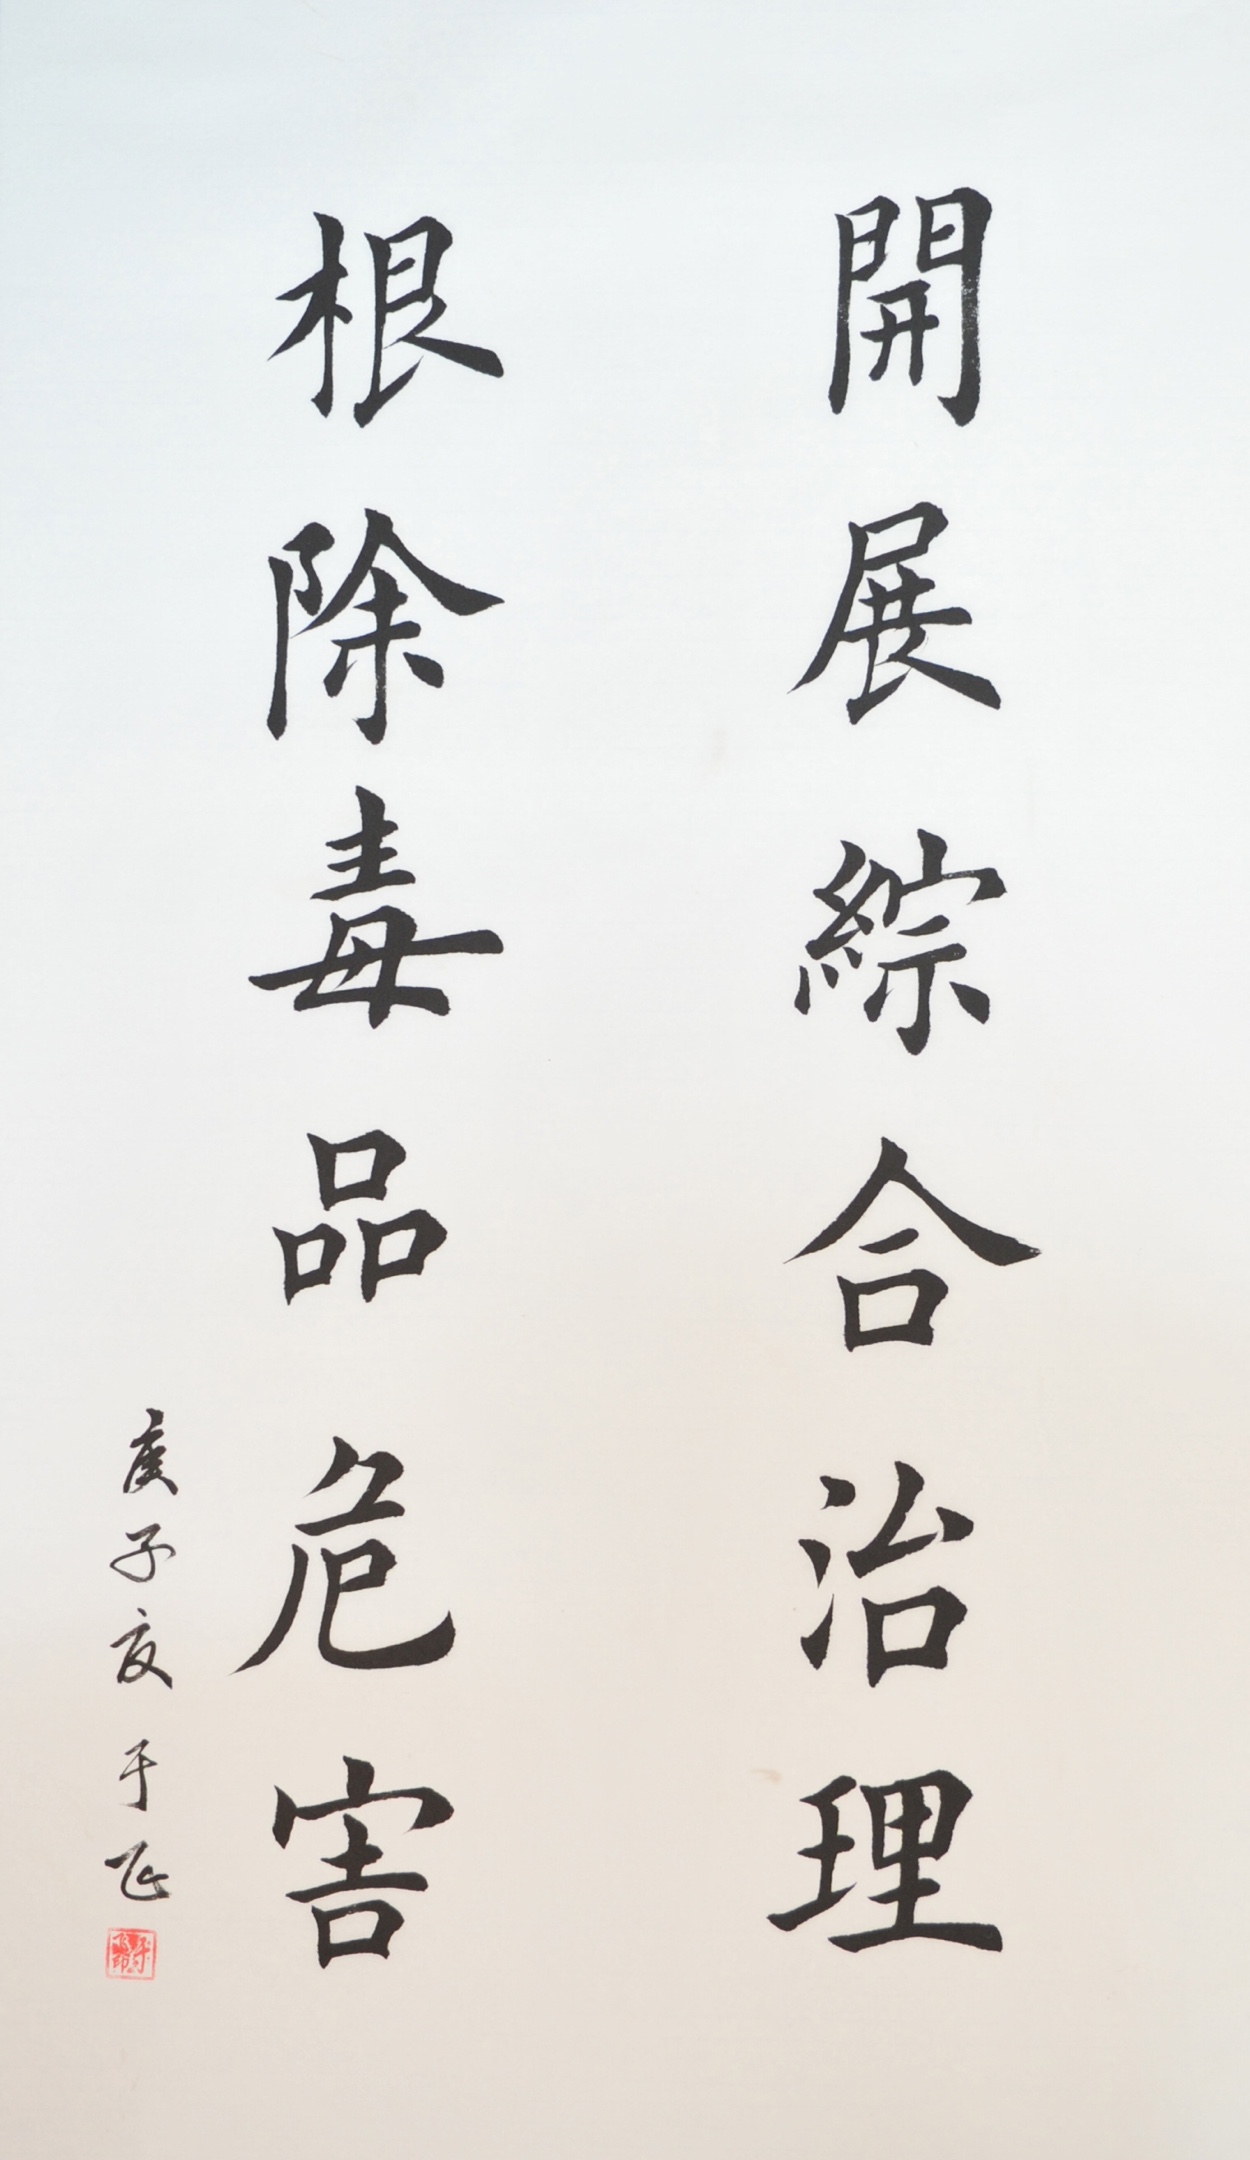 開展綜合治理
根除毒品危害
庚子夏 于飞